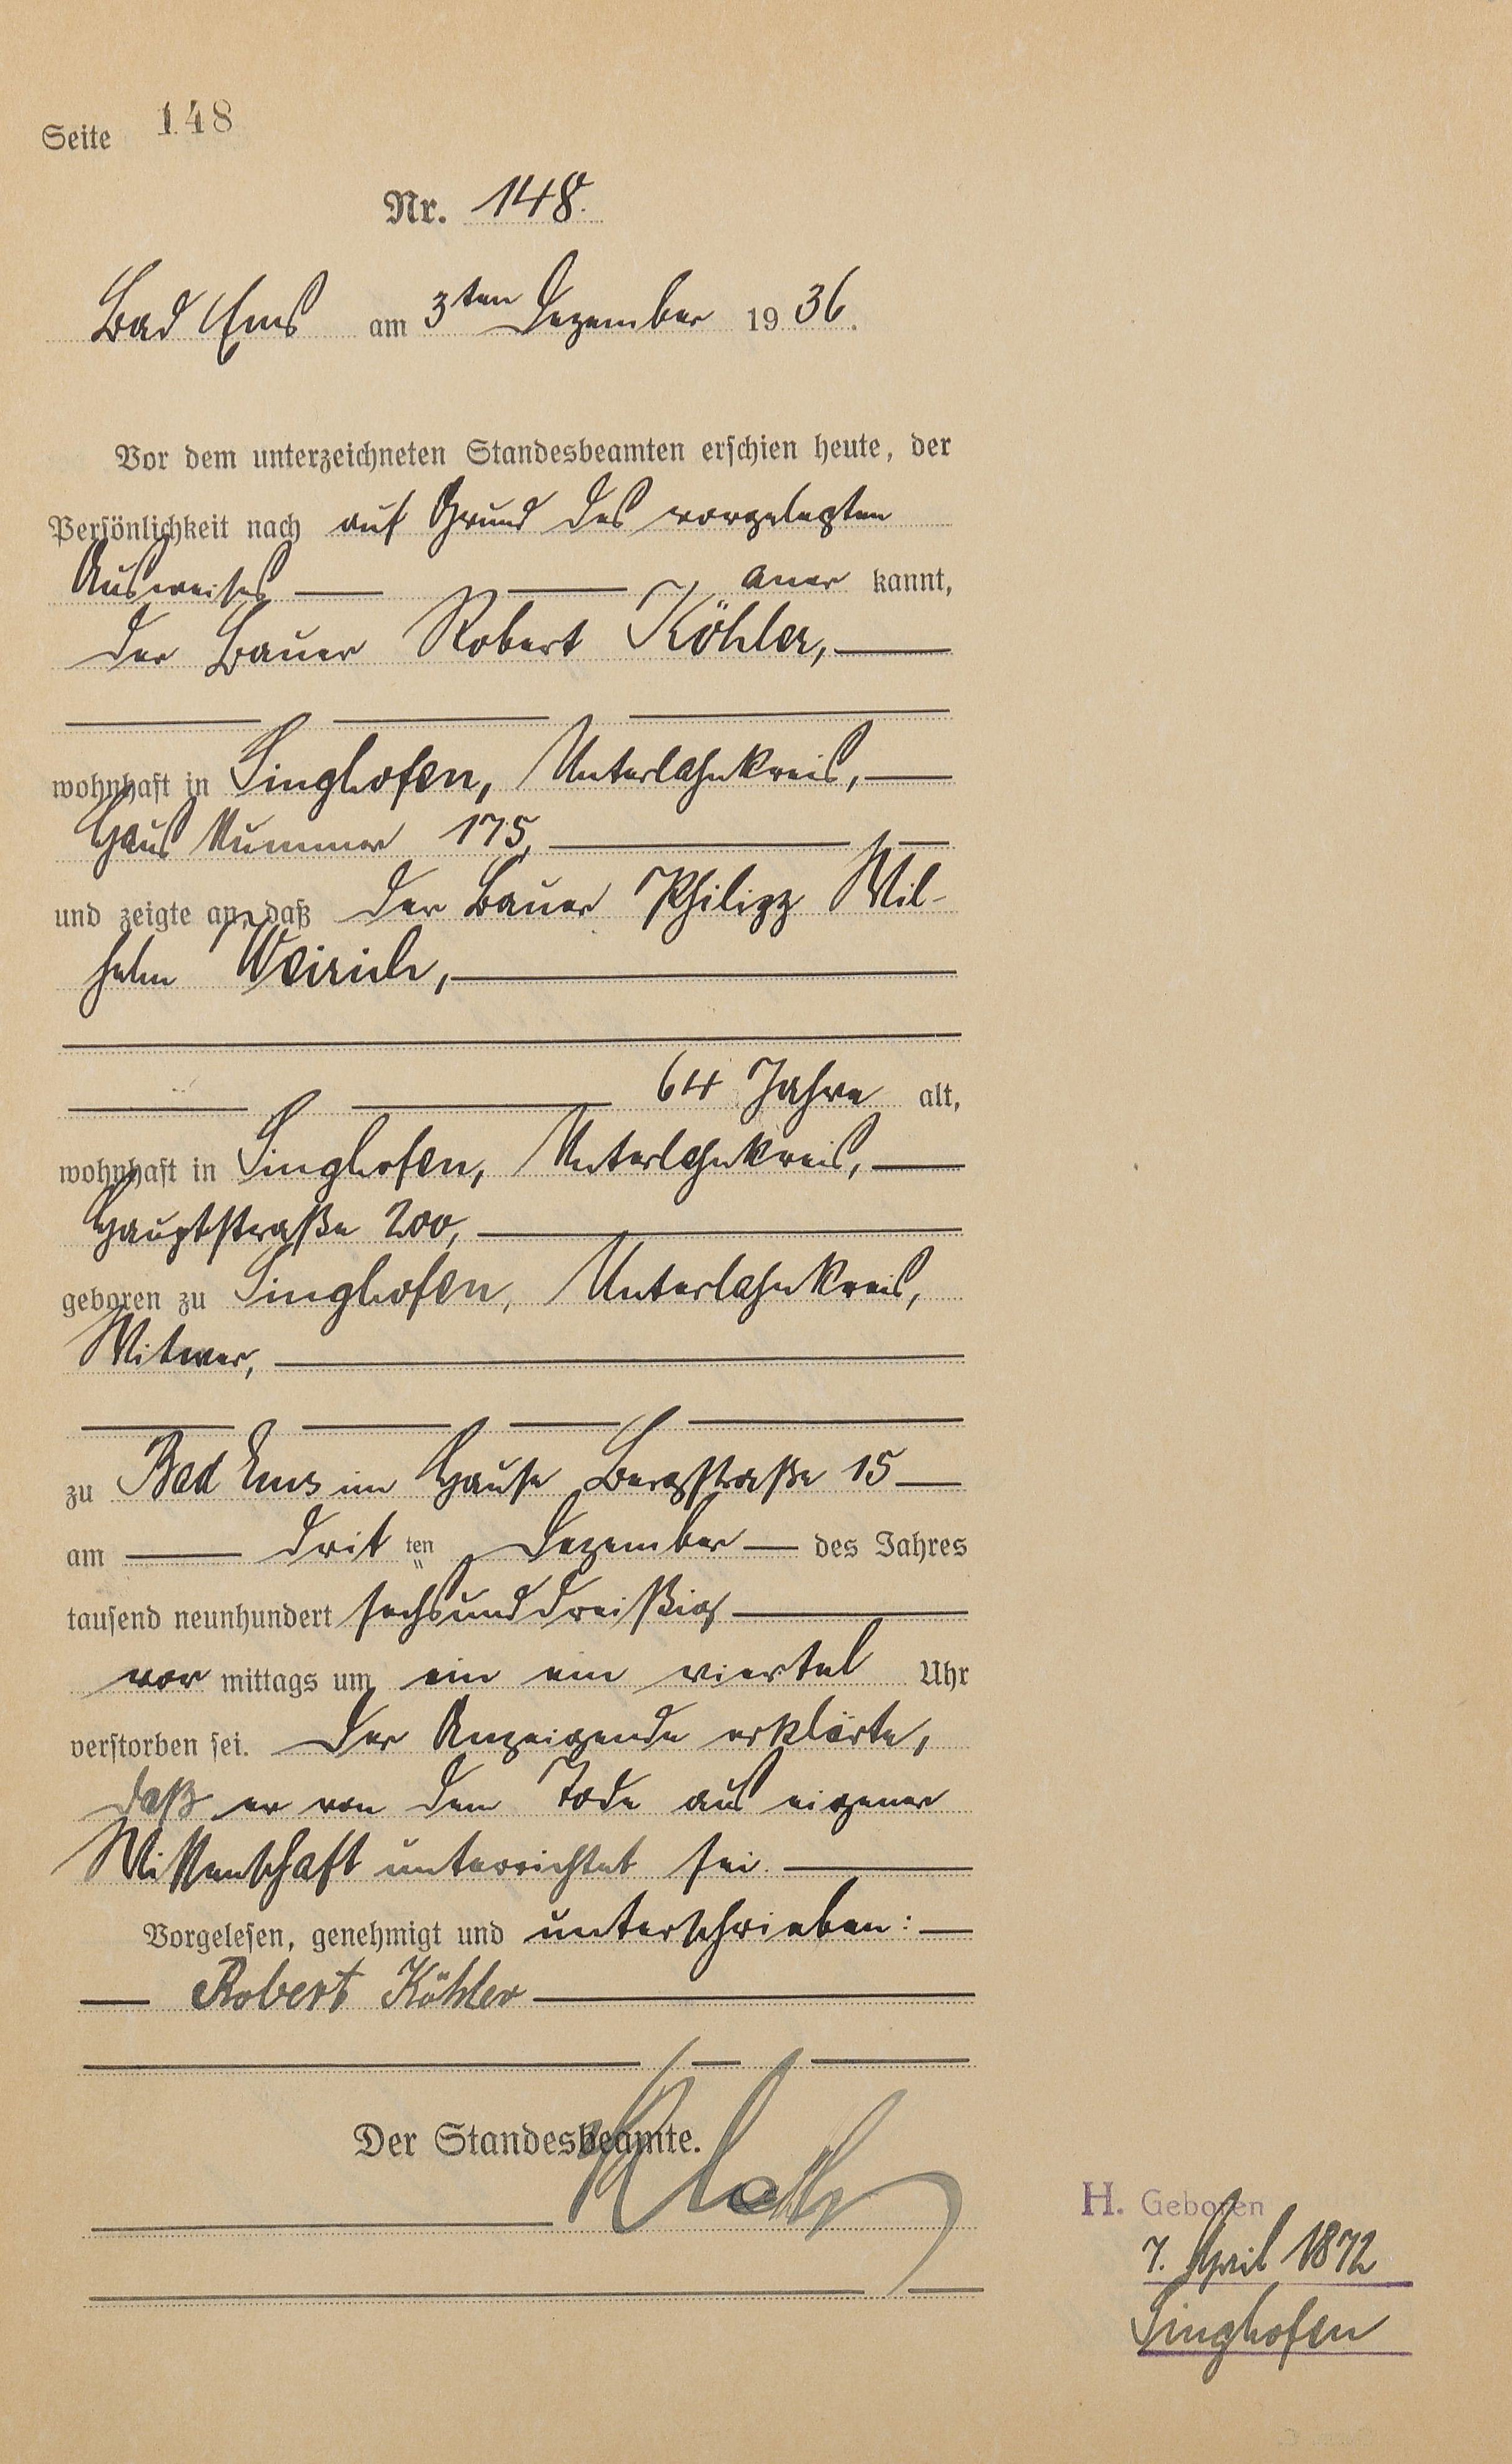 Seite 148
Nr. 148.
Bad Ems am 3ten Dezember 1936.
Vor dem unterzeichneten Standesbeamten erschien heute, der
Persönlichkeit nach auf Grund des vorgelegten
Ausweises aner kannt,
der Bauer Robert Köhler,
wohnhaft in Singhofen, Unterlahnkreis,
Haus Nummer 175,
und zeigte an, daß der Bauer Philipp Wil-
helm Weirich,
64 Jahre alt,
wohnhaft in Singhofen, Unterlahnkreis,
Hauptstraße 200,
geboren zu Singhofen, Unterlahnkreis,
Witwer,
zu Bad Ems im Hause Bergstraße 15
am drit ten Dezember des Jahres
tausend neunhundert sechsunddreißig
vor mittags um ein ein viertel Uhr
verstorben sei. Der Anzeigende erklärte,
daß er von dem Tode aus eigener
Wissenschaft unterrichtet sei.
Vorgelesen, genehmigt und unterschrieben:
Robert Köhler
Der Standesbeamte.
H. Geboren
7. April 1872
Singhofen